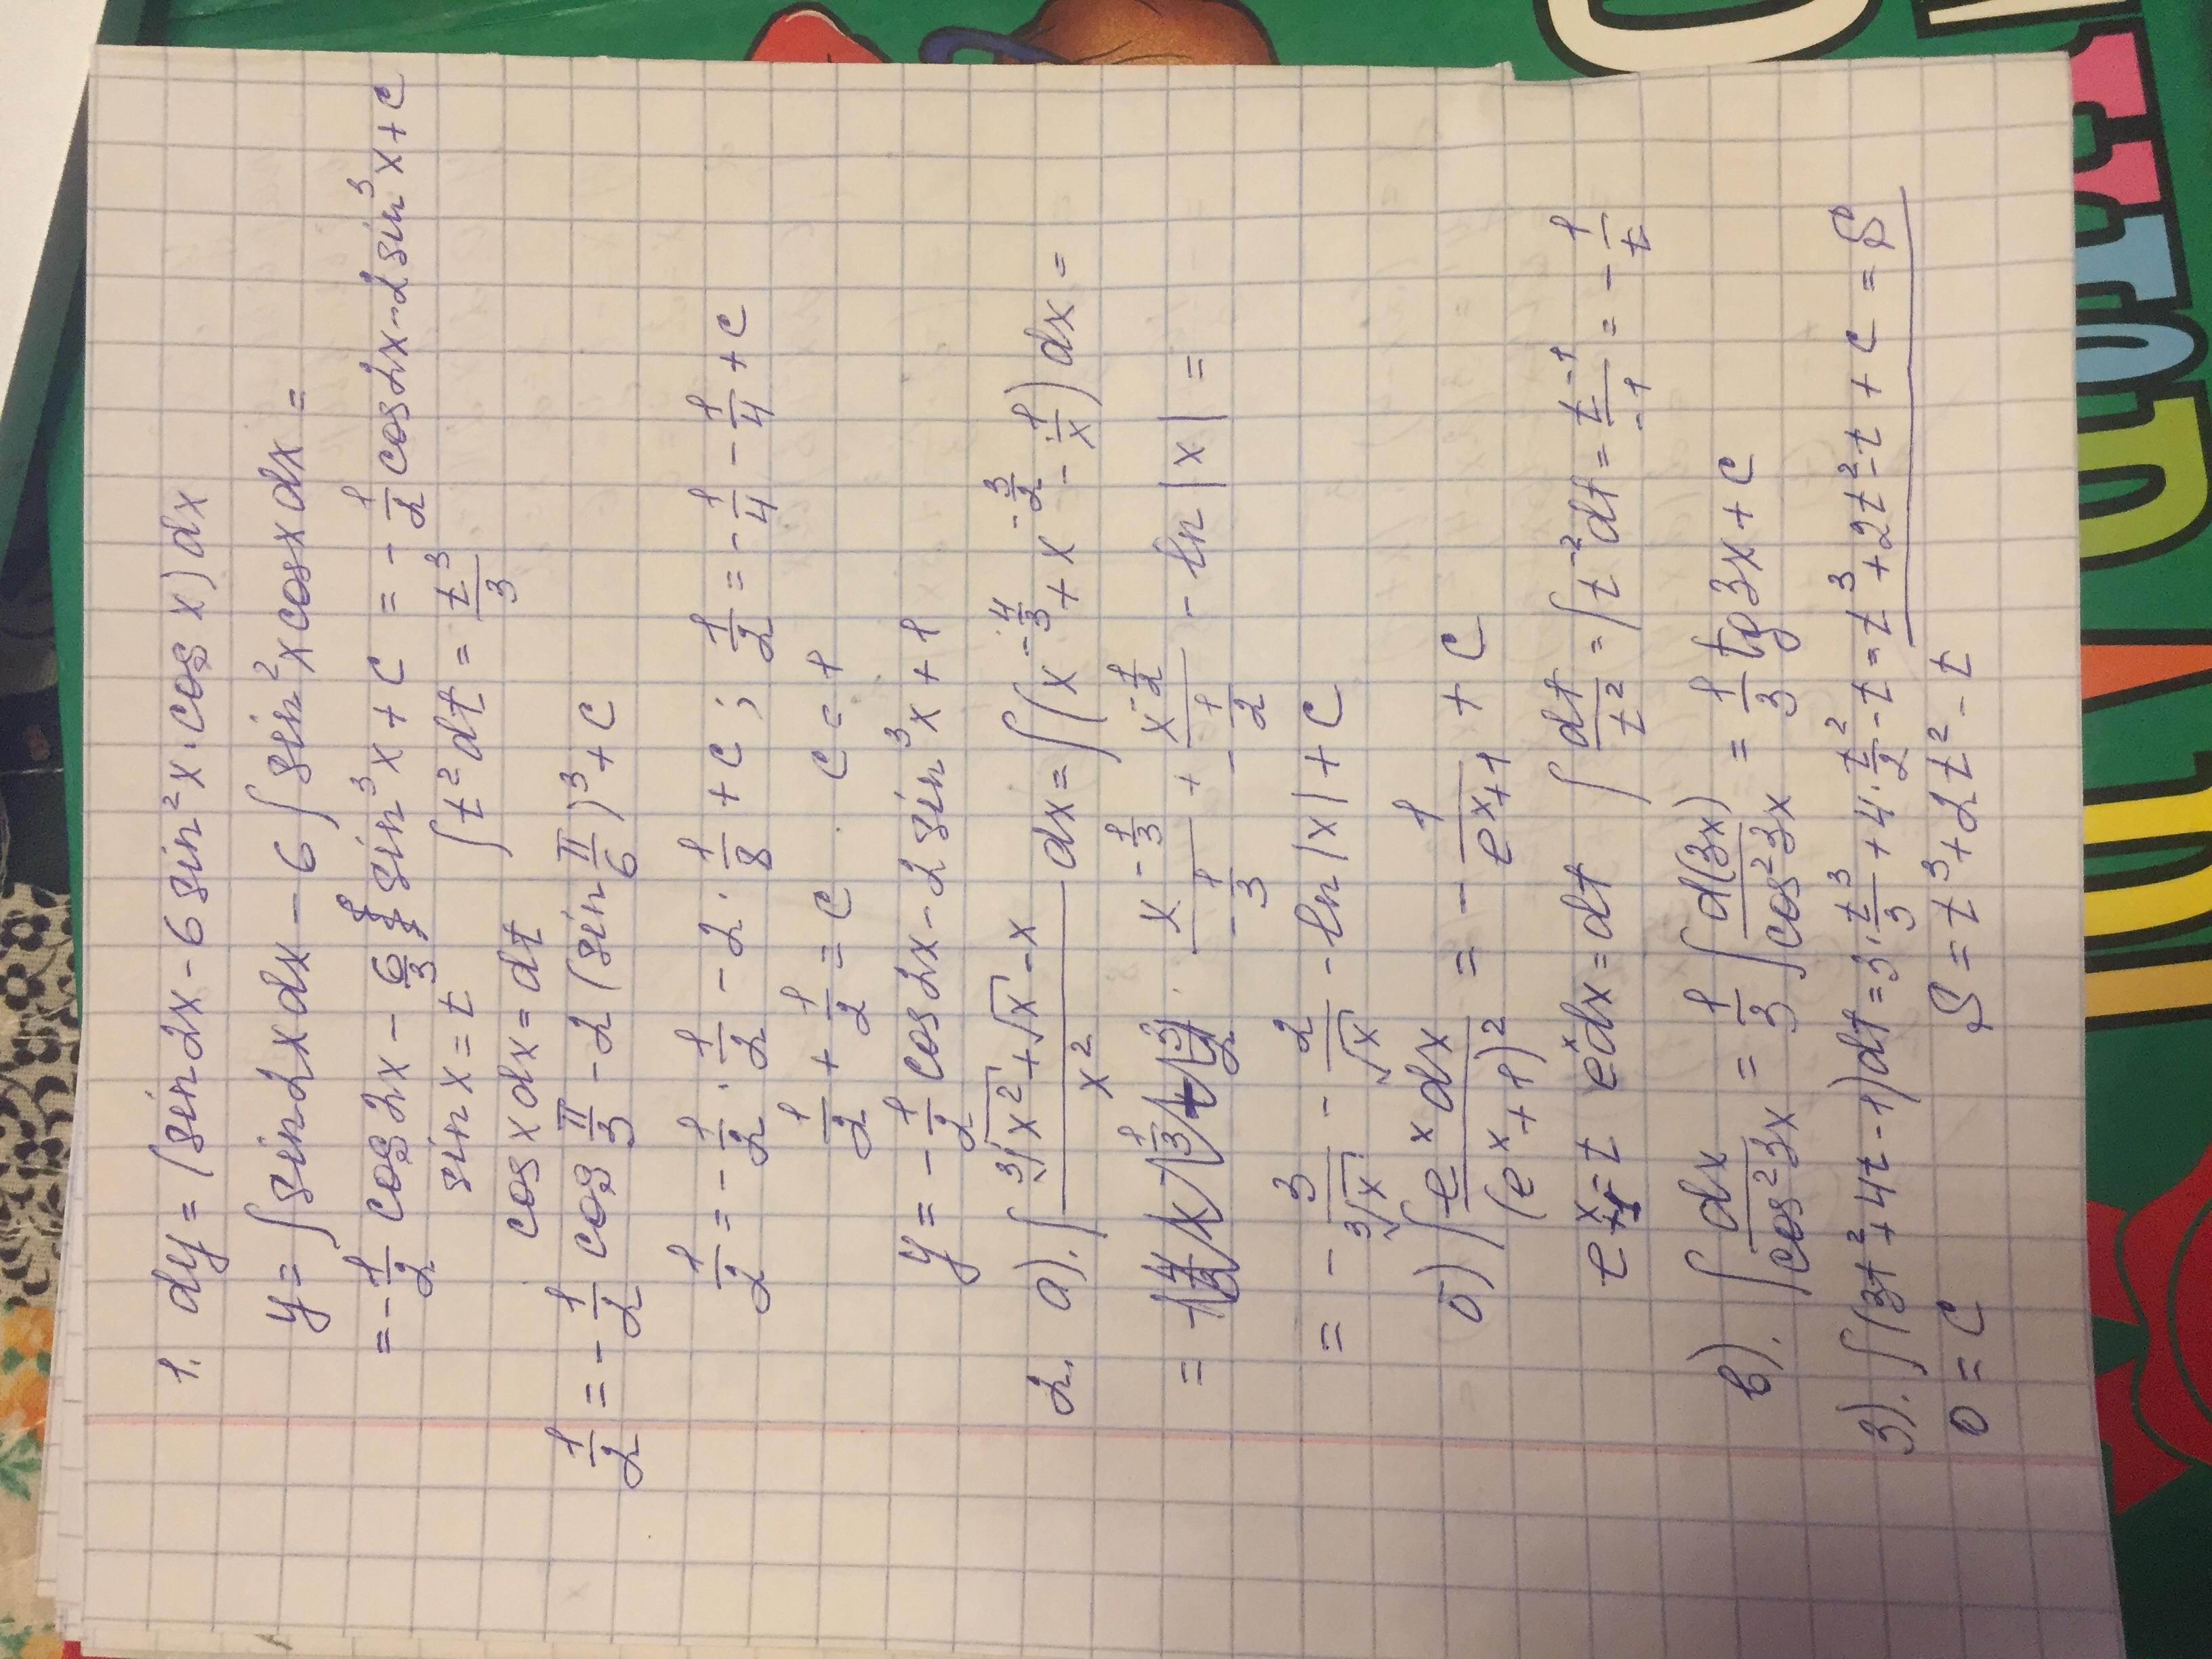 1. dy = (sin 2x - 6 sin²x · cos x) dx
y = ∫ sin 2x dx - 6 ∫ sin²x cos x dx =
= - 1/2 cos 2x - 6/3 sin³x + C = - 1/2 cos 2x - 2 sin³x + C
sin x = t ∫ t² dt = t³/3
cos x dx = dt
1/2 = - 1/2 cos π/3 - 2 (sin π/6)³ + C
1/2 = - 1/2 · 1/2 - 2 · 1/8 + C ; 1/2 = - 1/4 - 1/4 + C
1/2 + 1/2 = C C = 1
y = - 1/2 cos 2x - 2 sin³x + 1
2. а). ∫ (∛x² + √x - x)/x² dx = ∫ (x^(-4/3) + x^(-3/2) - 1/x) dx =
= x^(-1/3)/(-1/3) + x^(-1/2)/(-1/2) - ln |x| =
= - 3/∛x - 2/√x - ln |x| + C
б) ∫ e^x dx/(e^x + 1)² = - 1/(e^x + 1) + C
e^x = t e^x dx = dt ∫ dt/t² = ∫ t^(-2) dt = t^(-1)/(-1) = - 1/t
в). ∫ dx/cos² 3x = 1/3 ∫ d(3x)/cos² 3x = 1/3 tg 3x + C
3). ∫ (3t² + 4t - 1) dt = 3 · t³/3 + 4 · t²/2 - t = t³ + 2t² - t + C = S
0 = C S = t³ + 2t² - t